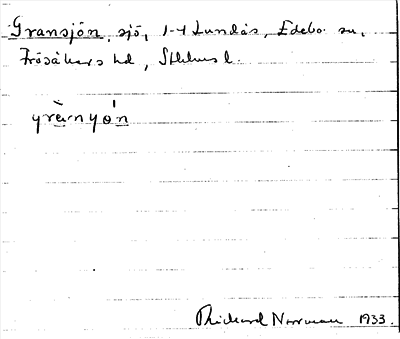 Gransjön, sjö, 1-4 Lundås, Edebo sn,
Frösåkers hd, Sthlms l.
Richard Norrman 1933.